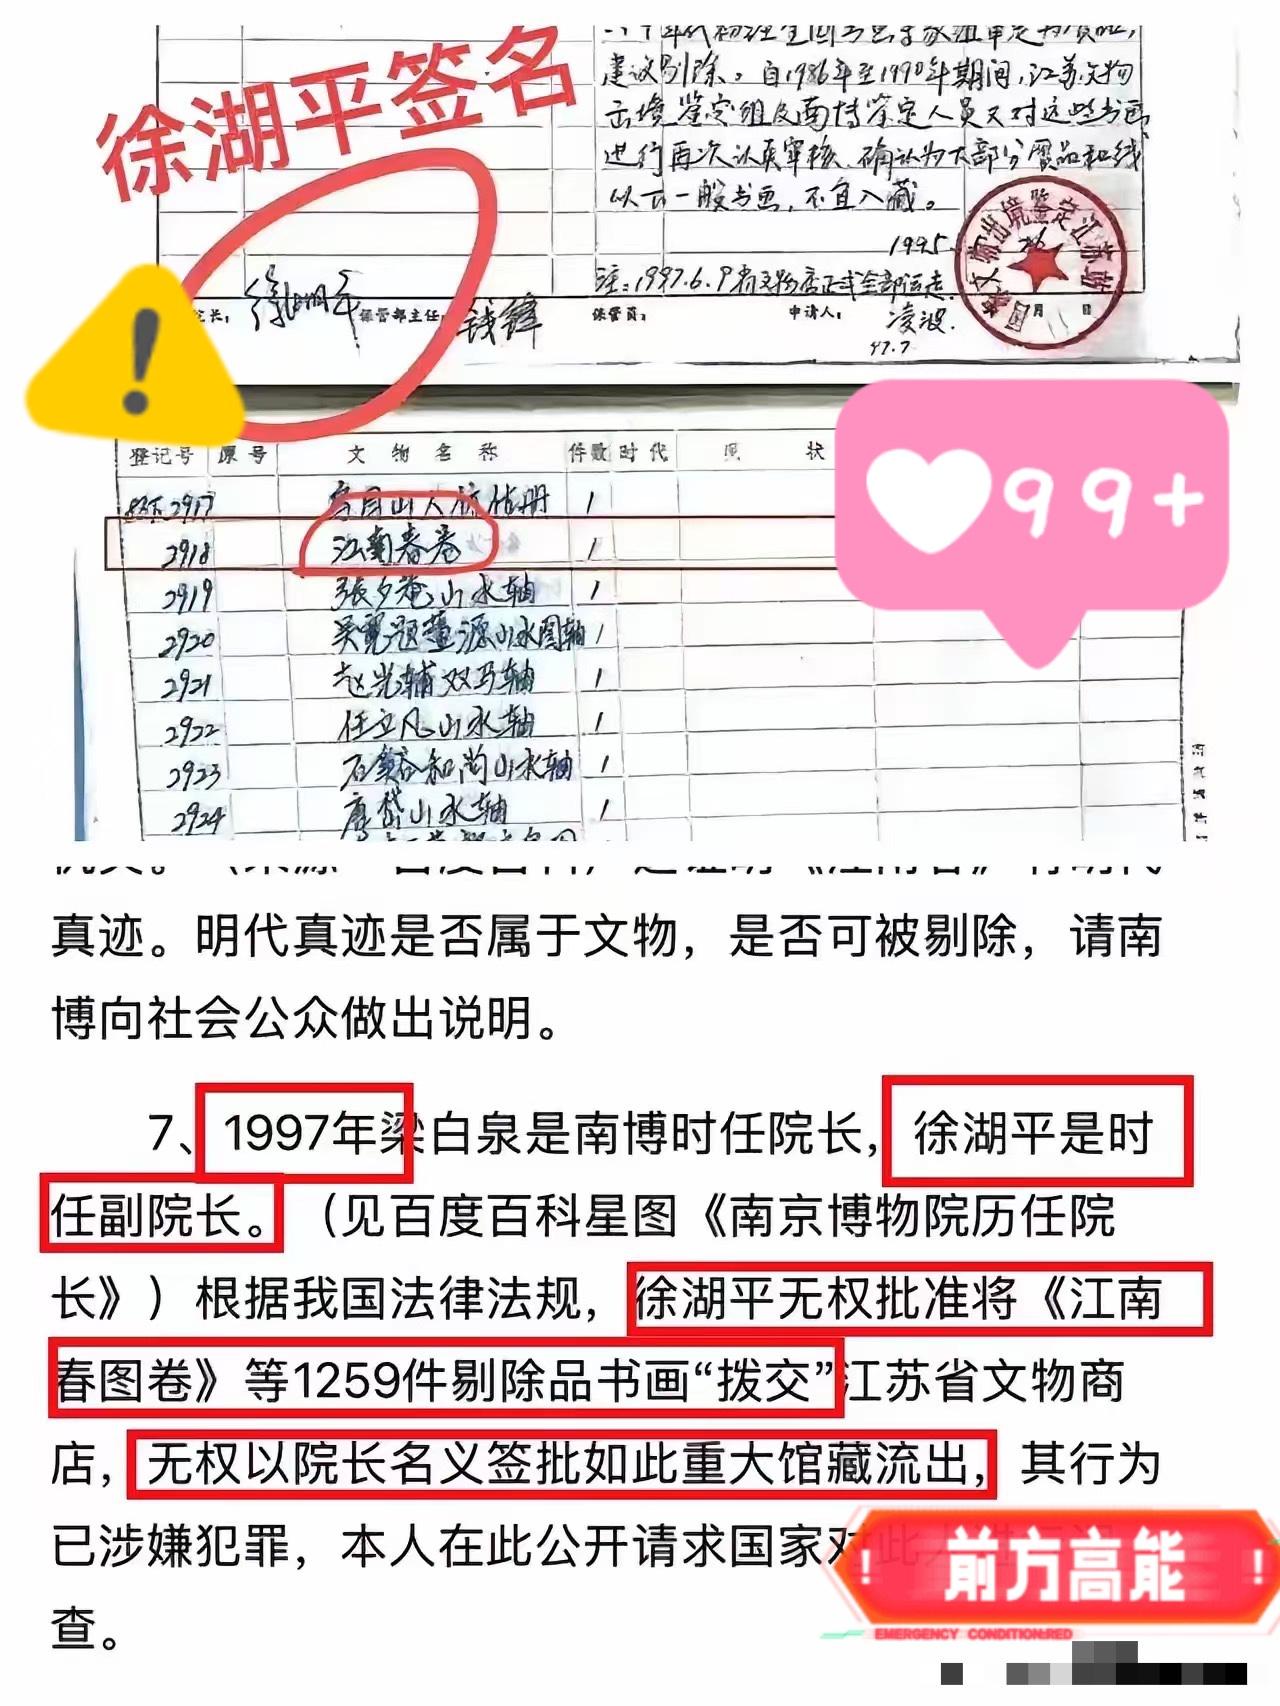 徐湖平签名
建议剔除。自1986年至1990年期间,江苏文物
出境鉴定组及南博鉴定人员又对这些书画
进行再次认真审核,确认为大部分赝品和线
以下一般书画,不宜入藏。
1995.
注:1997.6.9
院长: 徐湖平 保管部主任: 钱锋 保管员: 申请人: 凌波. 月 日
97.7
登记号 原号 文物名称 件数 时代 现状
2917 1
2918 江南春卷 1
2919 張夕庵山水轴 1
2920 山水图轴 1
2921 赵光辅双马轴 1
2922 任立凡山水轴 1
2923 和尚山水轴 1
2924 唐岱山水轴 1
99+
真迹。明代真迹是否属于文物，是否可被剔除，请南
博向社会公众做出说明。
7、1997年梁白泉是南博时任院长，徐湖平是时
任副院长。（见百度百科星图《南京博物院历任院
长》）根据我国法律法规，徐湖平无权批准将《江南
春图卷》等1259件剔除品书画“拨交”江苏省文物商
店，无权以院长名义签批如此重大馆藏流出，其行为
已涉嫌犯罪，本人在此公开请求国家对
查。
! 前方高能 !
EMERGENCY CONDITION:RED